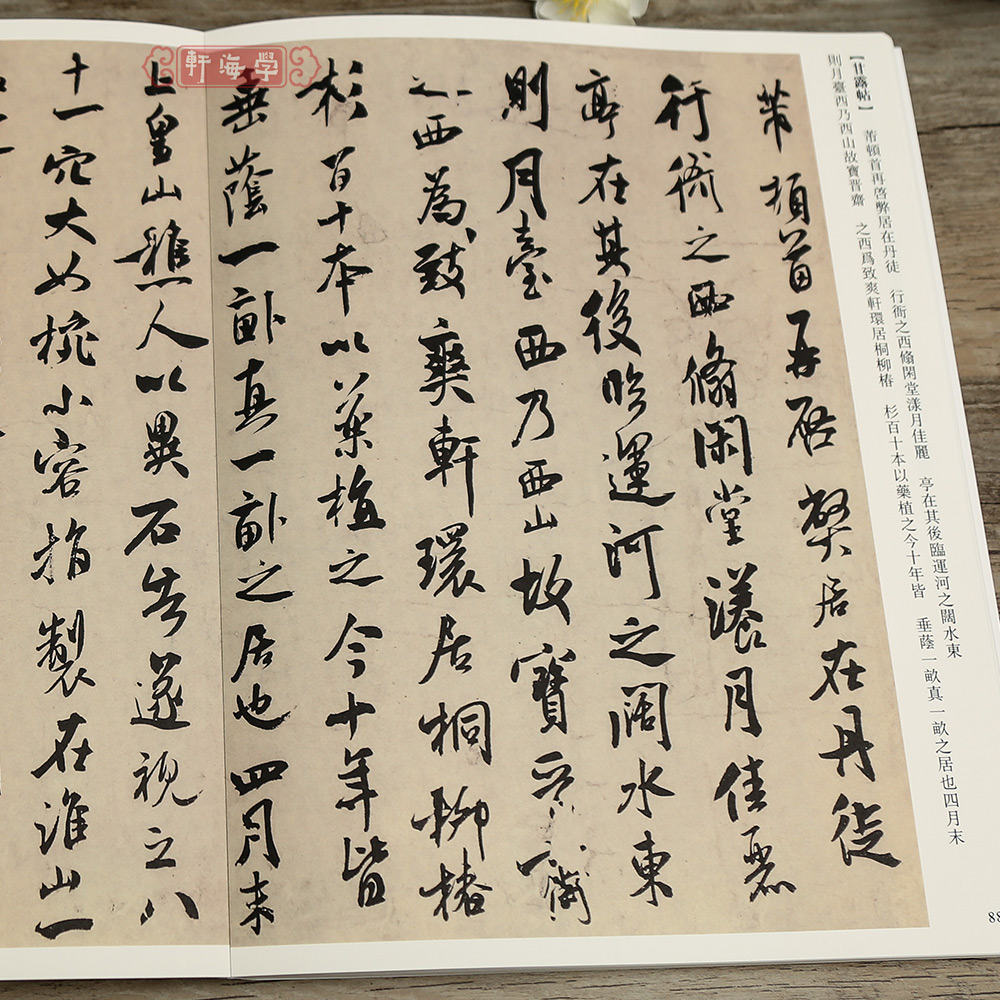 學海軒
【甘露帖】 芾頓首再啓弊居在丹徒 行衙之西翛閑堂漾月佳麗 亭在其後臨運河之闊水東
則月臺西乃西山故寶晋齋 之西爲致爽軒環居桐柳椿 杉百十本以藥植之今十年皆 垂蔭一畝真一畝之居也四月末
芾頓首再啓弊居在丹徒
行衙之西翛閑堂漾月佳麗
亭在其後臨運河之闊水東
則月臺西乃西山故寶晋齋
之西為致爽軒環居桐柳椿
杉百十本以藥植之今十年皆
垂蔭一畝真一畝之居也四月末
上皇山樵人以異石告遂視之八
十一穴大如椀小容指製在淮山一
88